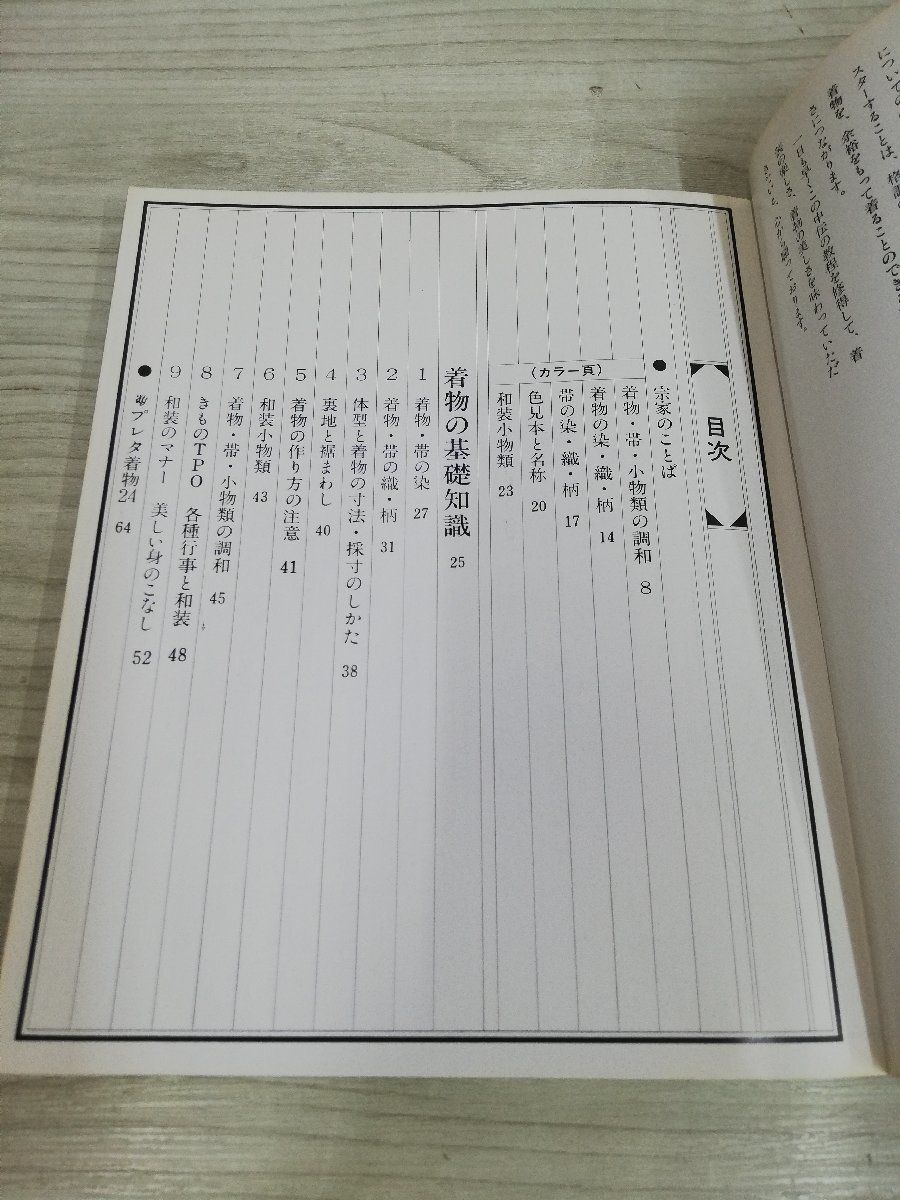 についての
スターすることは、格調
着物を、余裕をもって着ることのでき
さにつながります。
一日も早くこの中伝の教程を修得して、着
装の楽しさ、着物の美しさを味わっていただ
目次
●宗家のことば
（カラー頁）
着物・帯・小物類の調和 8
着物の染・織・柄 14
帯の染・織・柄 17
色見本と名称 20
和装小物類 23
着物の基礎知識 25
1 着物・帯の染 27
2 着物・帯の織・柄 31
3 体型と着物の寸法・採寸のしかた 38
4 裏地と裾まわし 40
5 着物の作り方の注意 41
6 和装小物類 43
7 着物・帯・小物類の調和 45
8 きものTPO 各種行事と和装 48
9 和装のマナー 美しい身のこなし 52
●プレタ着物24 64